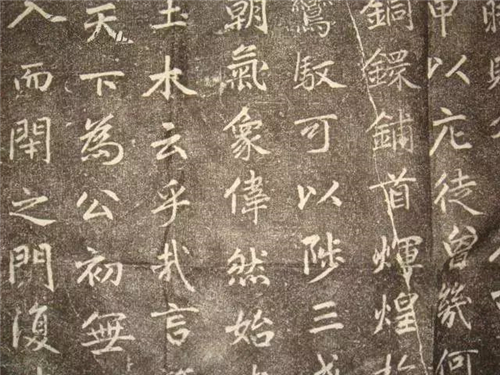 甲以庀徒曾幾何
銅鐶鋪首輝煌
鸞馭可以陟三
朝氣象偉然始
土木云乎哉言
天下為公初無
入而之復